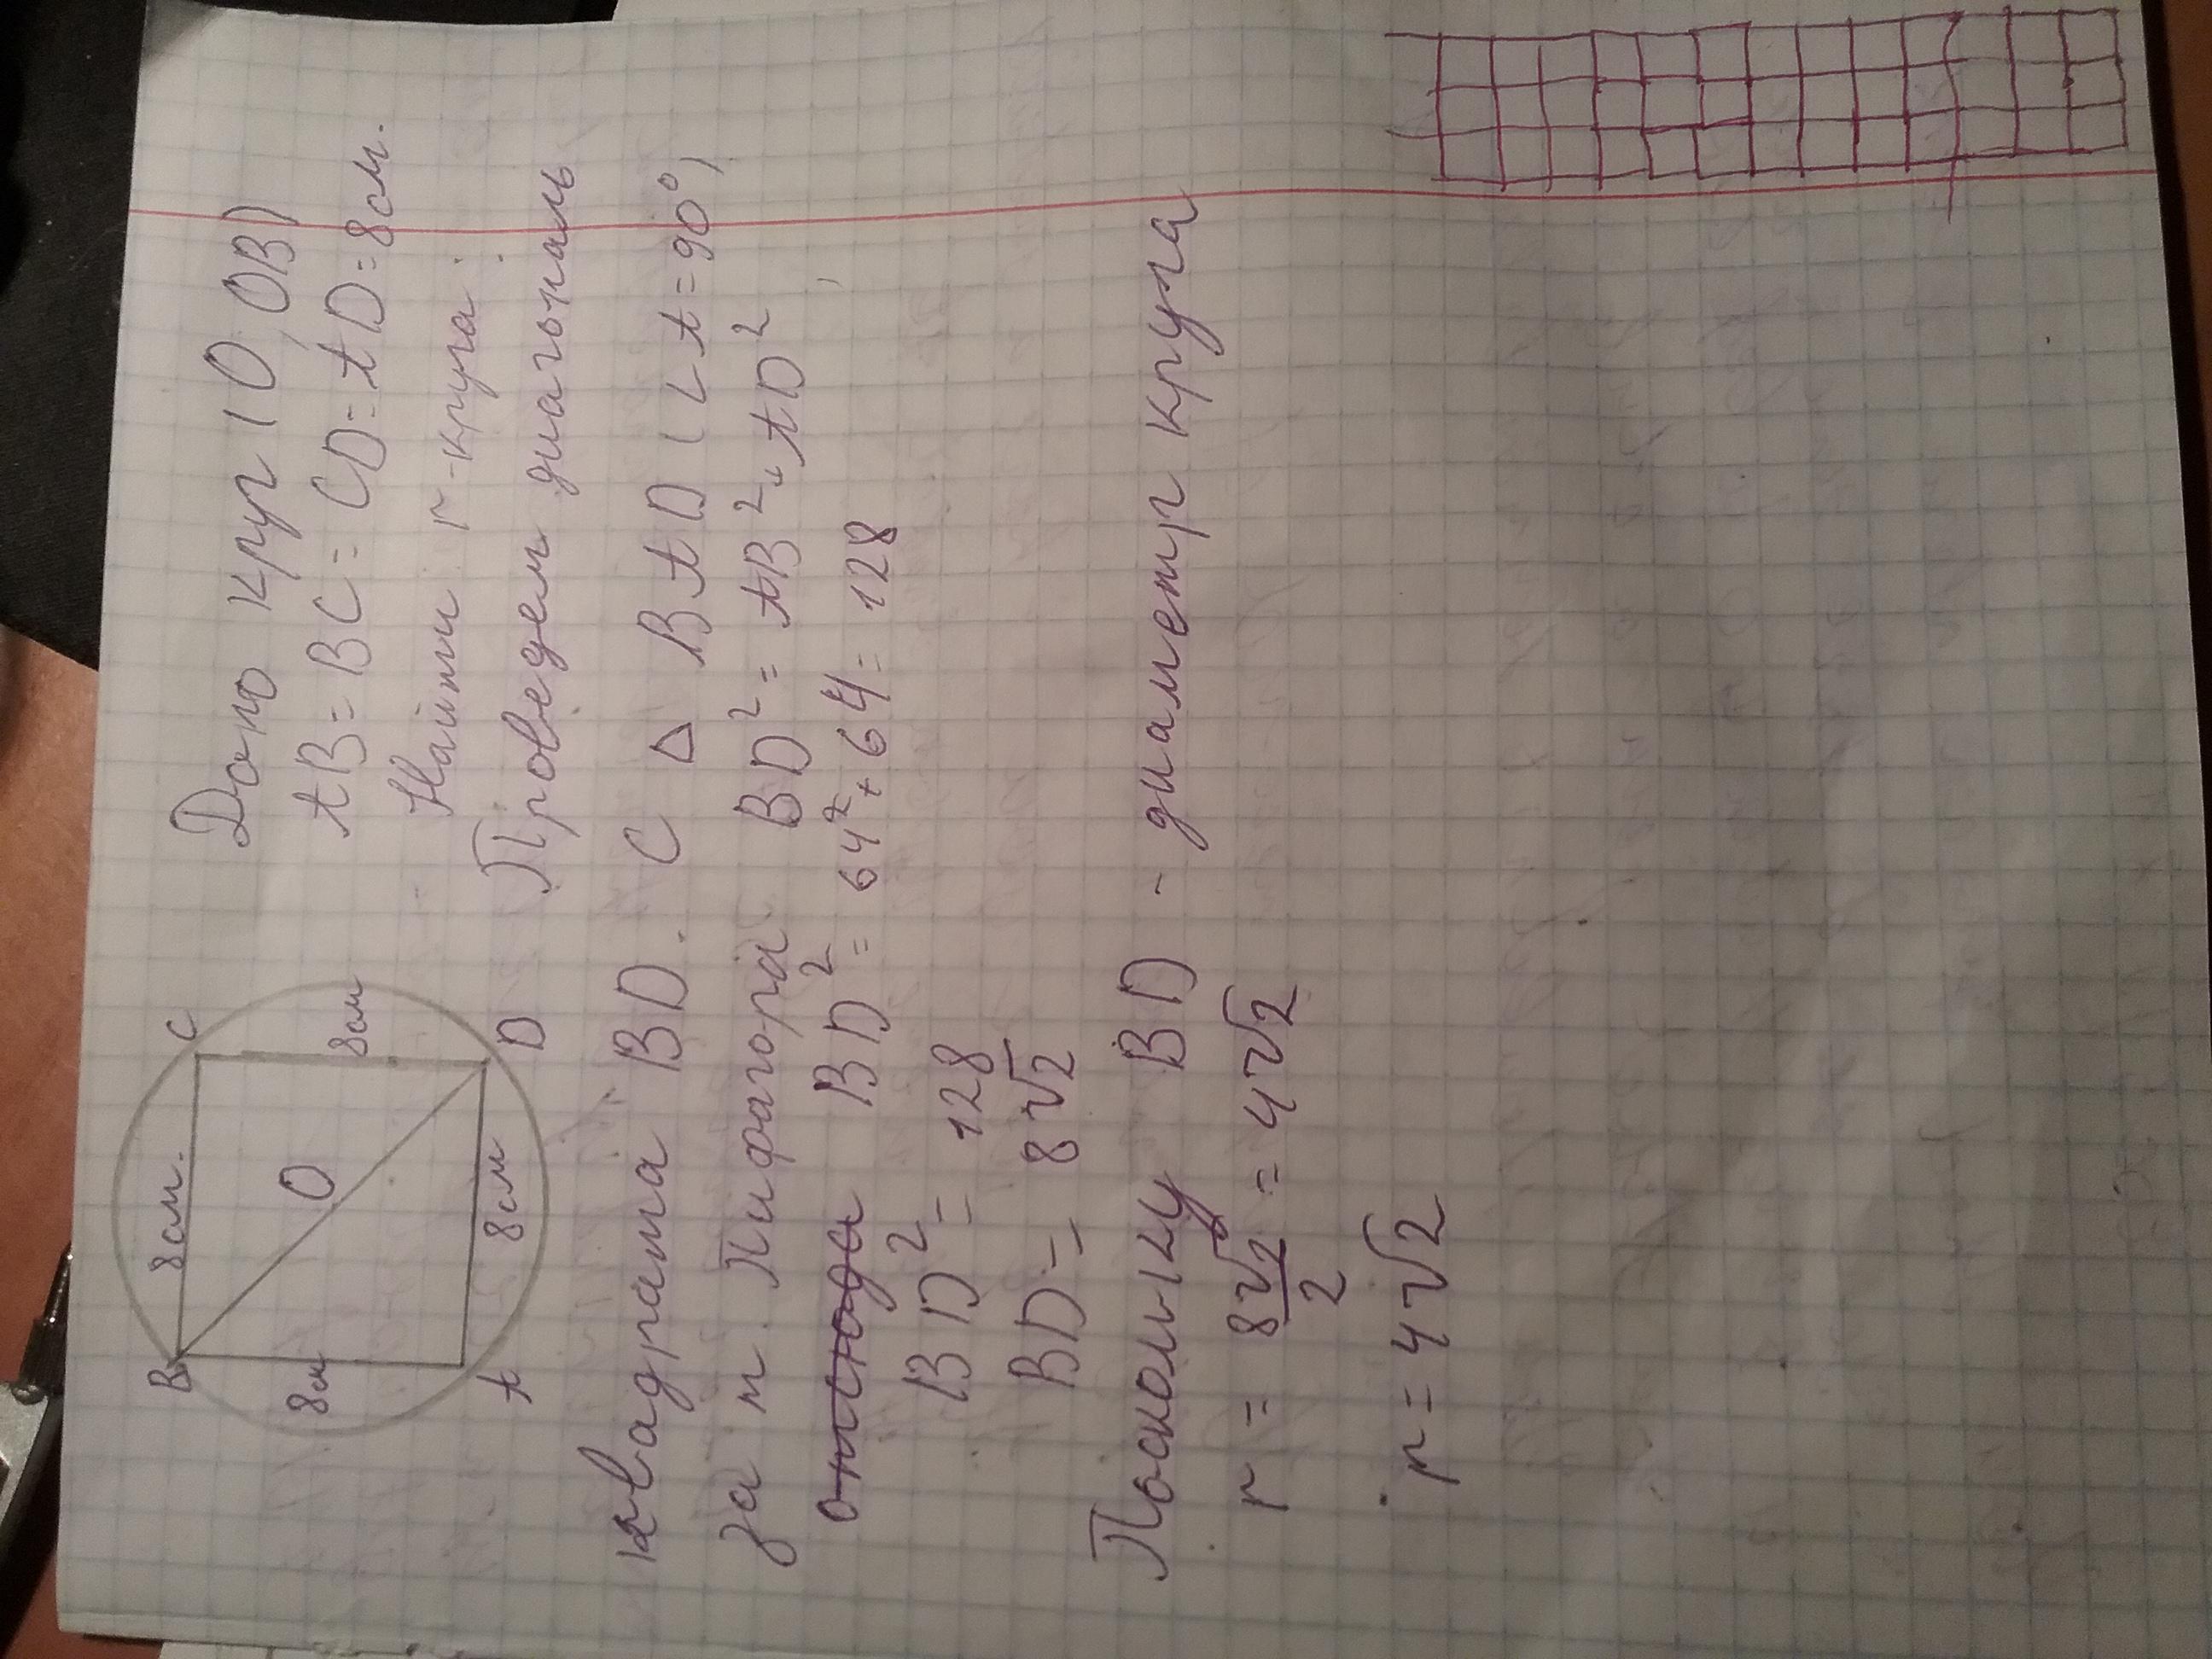 B
8см.
C
Дано круг (O, OB)
8см
O
8см
AB = BC = CD = AD = 8см.
A
8см
D
Найти r-круга:
Проведем диагональ
квадрата BD. С Δ BAD (∠A = 90°)
за т. Пифагора BD² = AB² + AD²
отсюда BD² = 64² + 64 = 128
BD² = 128
BD = 8√2
Поскольку BD - диаметр круга
r = 8√2/2 = 4√2
r = 4√2